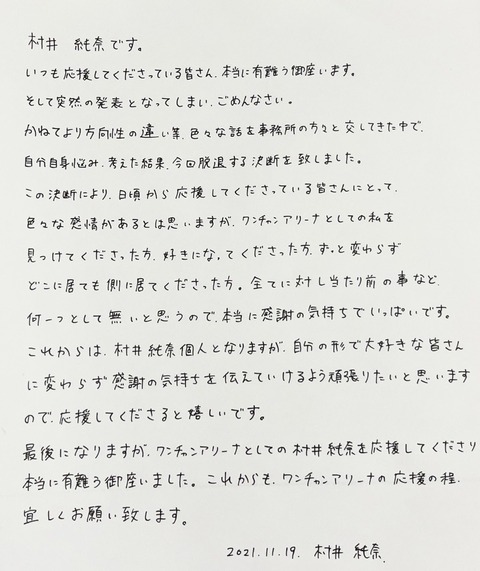 村井 純奈です。
いつも応援してくださっている皆さん、本当に有難う御座います。
そして突然の発表となってしまい、ごめんなさい。
かねてより方向性の違い等、色々な話を事務所の方々と交してきた中で、
自分自身悩み、考えた結果、今回脱退する決断を致しました。
この決断により、日頃から応援してくださっている皆さんにとって、
色々な感情があるとは思いますが、ワンチャンアリーナとしての私を
見つけてくださった方、好きになってくださった方、ずっと変わらず
どこに居ても側に居てくださった方。全てに対し当たり前の事など、
何一つとして無いと思うので、本当に感謝の気持ちでいっぱいです。
これからは、村井純奈個人となりますが、自分の形で大好きな皆さん
に変わらず感謝の気持ちを伝えていけるよう頑張りたいと思います
ので、応援してくださると嬉しいです。
最後になりますが、ワンチャンアリーナとしての村井純奈を応援してくださり
本当に有難う御座いました。これからも、ワンチャンアリーナの応援の程、
宜しくお願い致します。
2021.11.19. 村井 純奈.